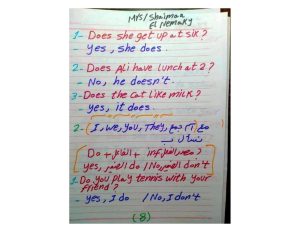 Mrs/Shaimaa
El Nemaky
1- Does she get up at six?
- yes, she does.
2- Does Ali have lunch at 2?
- No, he doesn't.
3- Does the cat like milk?
- yes, it does.
2- (I, we, you, They, جمع
Do + الفاعل + inf ?
yes, الضمير do / No, الضمير don't
1. Do you play tennis with your
friend?
- yes, I do / No, I don't
(8)